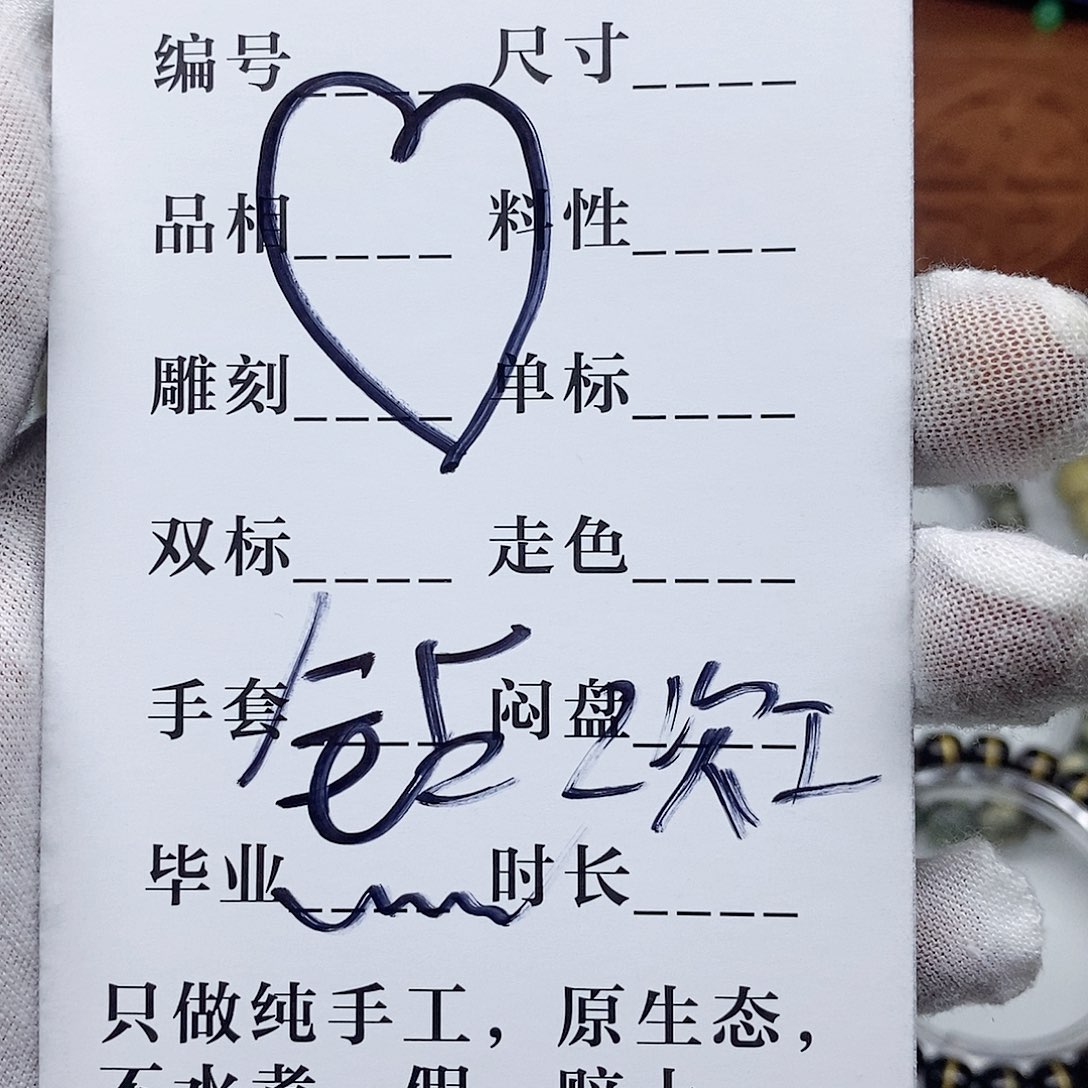 编号____ 尺寸____
品相____ 料性____
雕刻____ 单标____
双标____ 走色____
手套____ 闷盘____
2次工
毕业____ 时长____
只做纯手工，原生态，